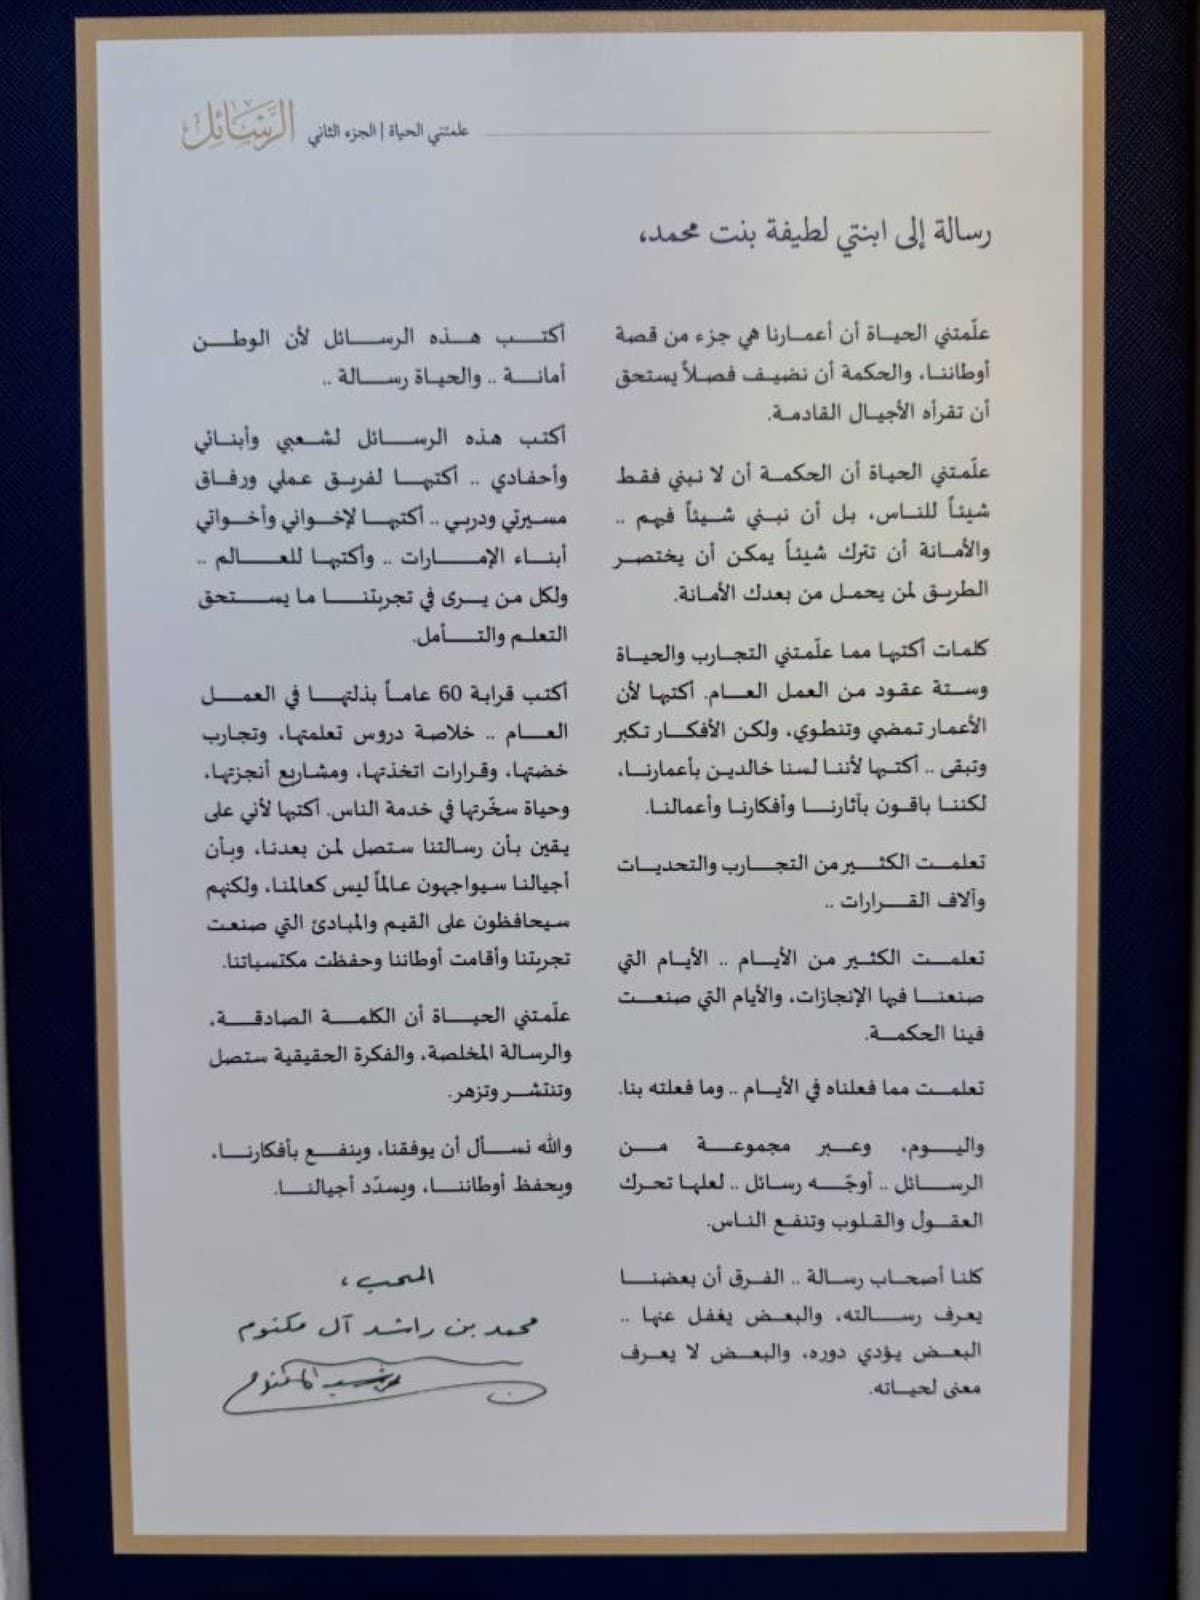 الرسائل
علمتني الحياة | الجزء الثاني
رسالة إلى ابنتي لطيفة بنت محمد،
علّمتني الحياة أن أعمارنا هي جزء من قصة
أوطاننا، والحكمة أن نضيف فصلاً يستحق
أن تقرأه الأجيال القادمة.
علّمتني الحياة أن الحكمة أن لا نبني فقط
شيئاً للناس، بل أن نبني شيئاً فيهم ..
والأمانة أن تترك شيئاً يمكن أن يختصر
الطريق لمن يحمل من بعدك الأمانة.
كلمات أكتبها مما علّمتني التجارب والحياة
وستة عقود من العمل العام. أكتبها لأن
الأعمار تمضي وتنطوي، ولكن الأفكار تكبر
وتبقى .. أكتبها لأننا لسنا خالدين بأعمارنا،
لكننا باقون بآثارنا وأفكارنا وأعمالنا.
تعلمت الكثير من التجارب والتحديات
وآلاف القرارات ..
تعلمت الكثير من الأيام .. الأيام التي
صنعنا فيها الإنجازات، والأيام التي صنعت
فينا الحكمة.
تعلمت مما فعلناه في الأيام .. وما فعلته بنا.
واليوم، وعبر مجموعة من
الرسائل .. أوجّه رسائل .. لعلها تحرك
العقول والقلوب وتنفع الناس.
كلنا أصحاب رسالة .. الفرق أن بعضنا
يعرف رسالته، والبعض يغفل عنها ..
البعض يؤدي دوره، والبعض لا يعرف
معنى لحياته.
أكتب هذه الرسائل لأن الوطن
أمانة .. والحياة رسالة ..
أكتب هذه الرسائل لشعبي وأبنائي
وأحفادي .. أكتبها لفريق عملي ورفاق
مسيرتي ودربي .. أكتبها لإخواني وأخواتي
أبناء الإمارات .. وأكتبها للعالم ..
ولكل من يرى في تجربتنا ما يستحق
التعلم والتأمل.
أكتب قرابة 60 عاماً بذلتها في العمل
العام .. خلاصة دروس تعلمتها، وتجارب
خضتها، وقرارات اتخذتها، ومشاريع أنجزتها،
وحياة سخّرتها في خدمة الناس. أكتبها لأني على
يقين بأن رسالتنا ستصل لمن بعدنا، وبأن
أجيالنا سيواجهون عالماً ليس كعالمنا، ولكنهم
سيحافظون على القيم والمبادئ التي صنعت
تجربتنا وأقامت أوطاننا وحفظت مكتسباتنا.
علّمتني الحياة أن الكلمة الصادقة،
والرسالة المخلصة، والفكرة الحقيقية ستصل
وتنتشر وتزهر.
والله نسأل أن يوفقنا، وينفع بأفكارنا،
ويحفظ أوطاننا، ويسدّد أجيالنا.
المحب،
محمد بن راشد آل مكتوم